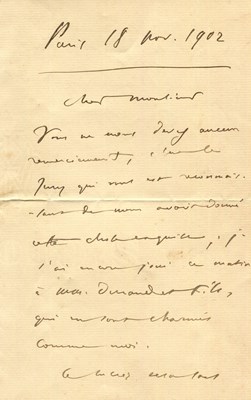 Paris 18 nov. 1902
cher Monsieur
Vous ne nous devez aucun
remerciement, c'est le
Jury qui vous est reconnais-
-sant de nous avoir donné
cette chose exquise ; j-
l'ai encore joué ce matin
à MM. Durand et fils,
qui en sont charmés
comme moi.
Ce succès